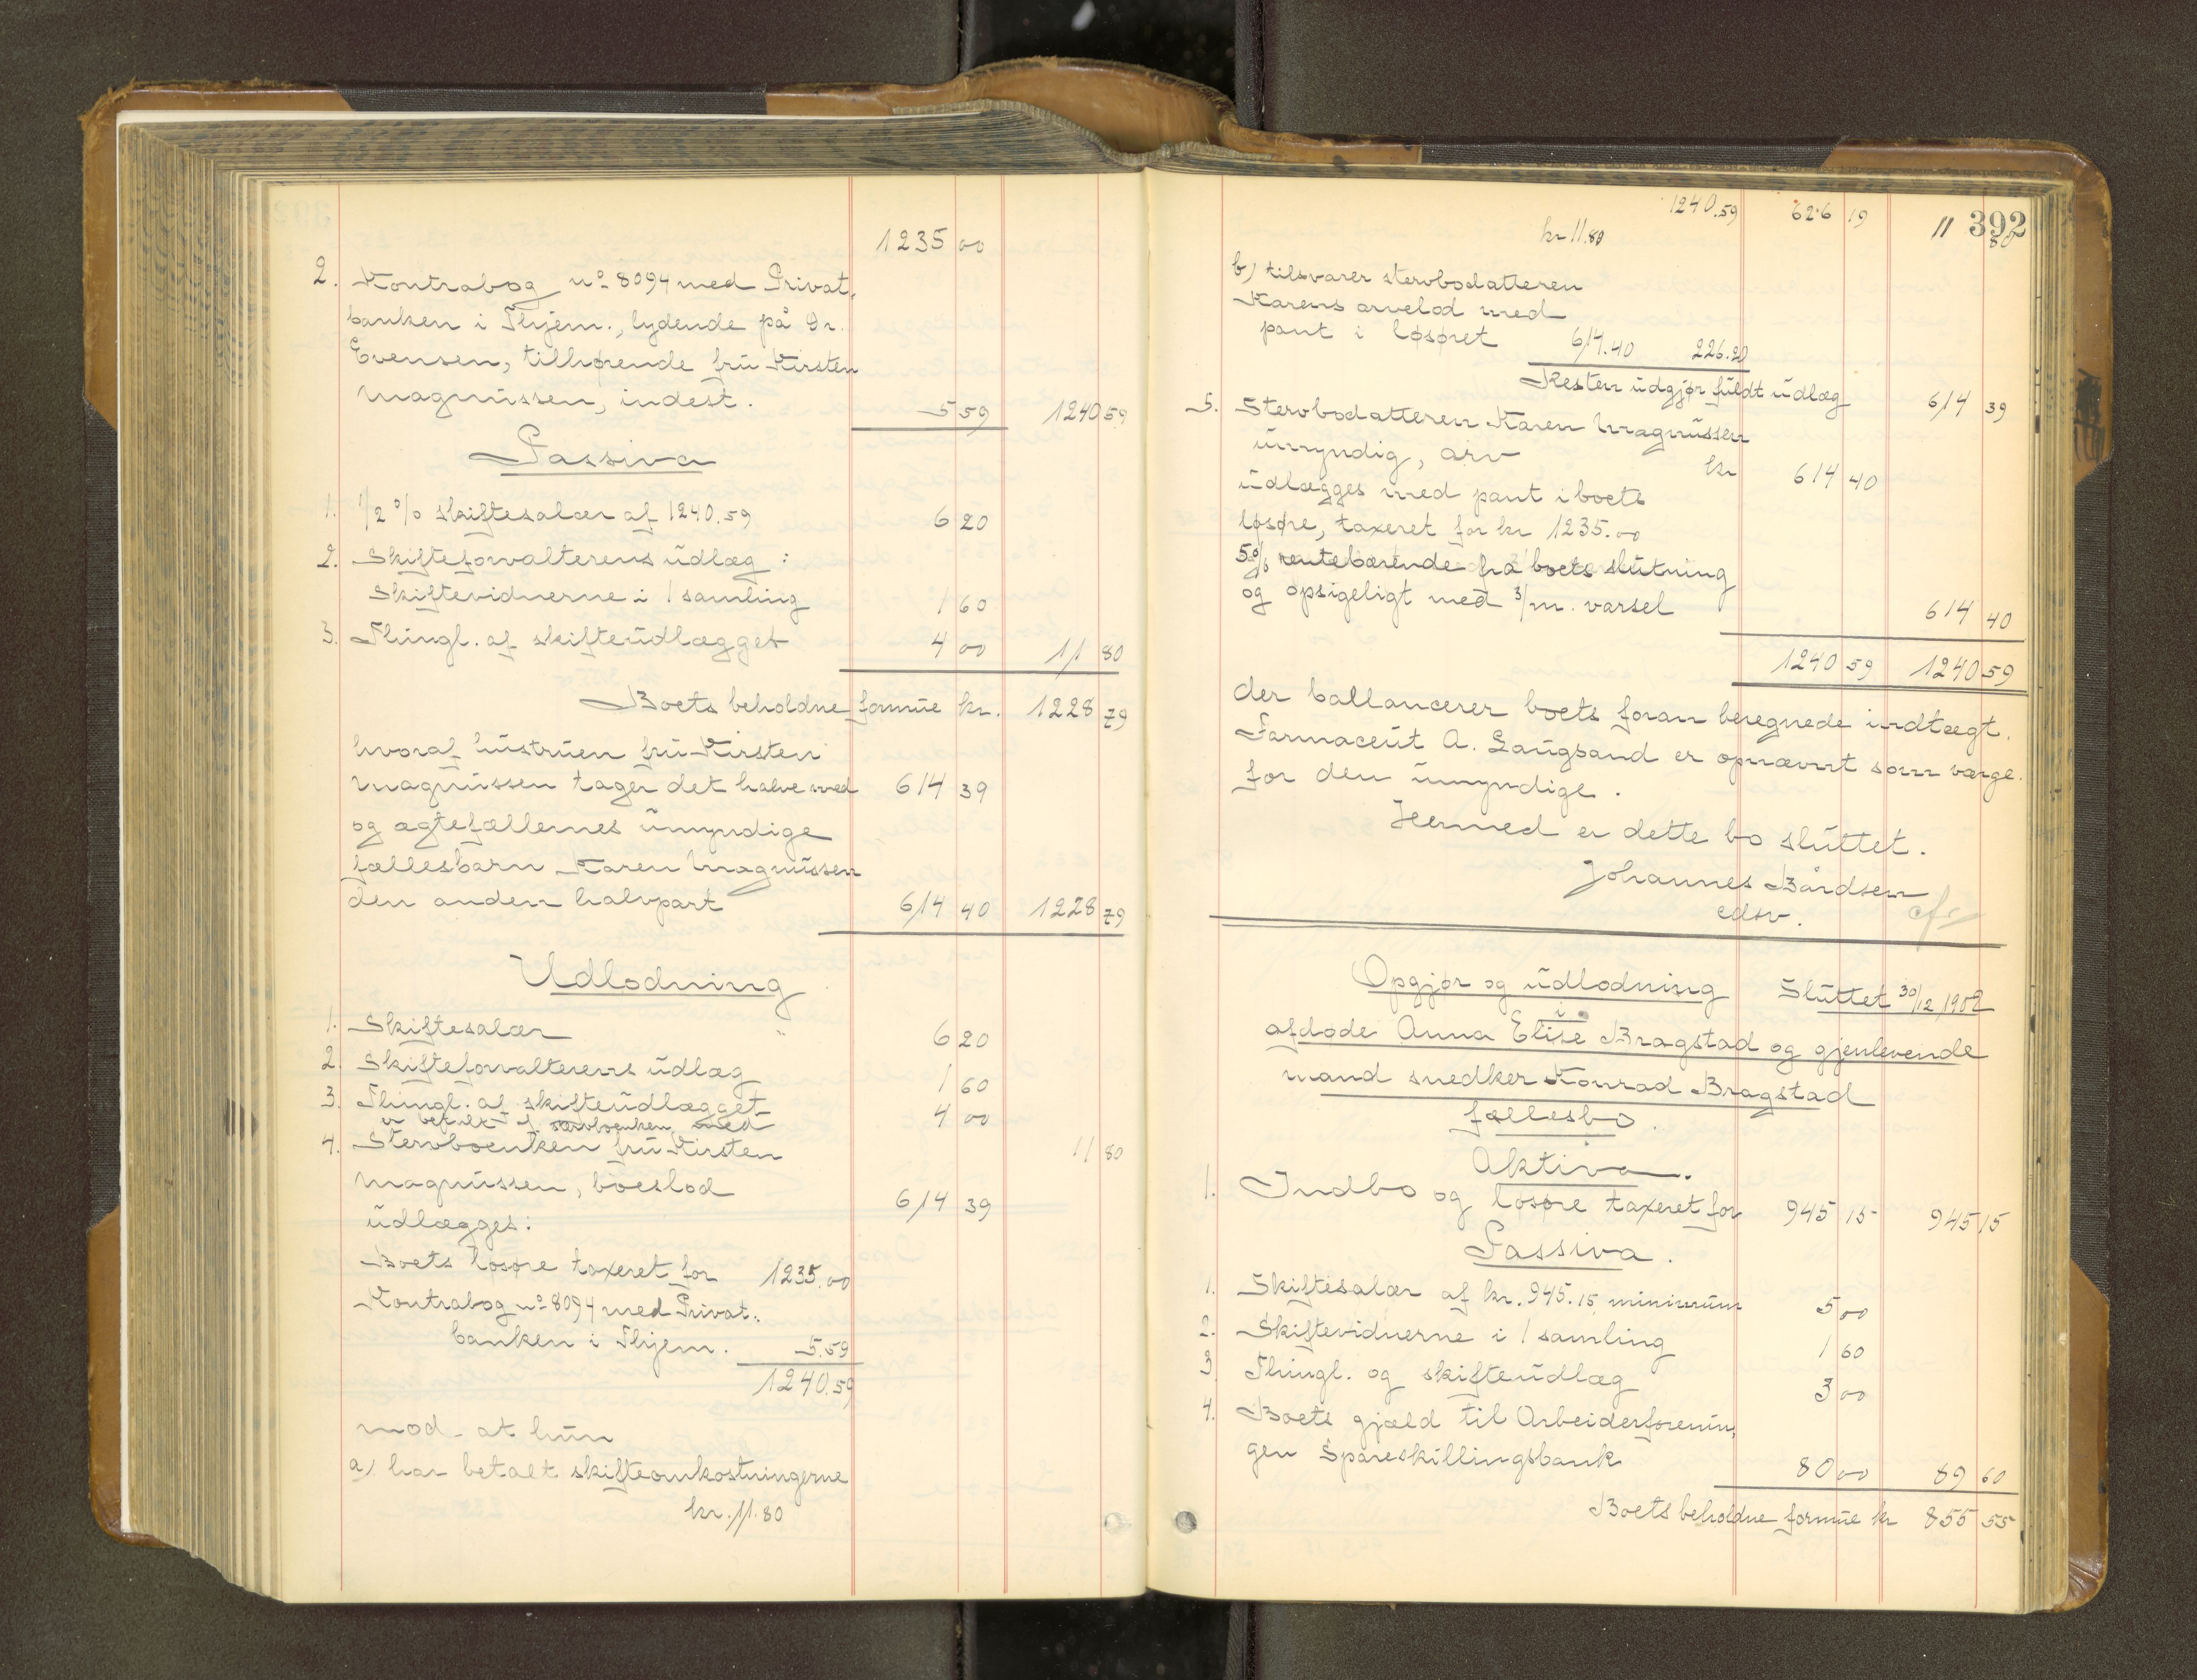 1235 00
2. Kontrabog no 8094 med Privat-
banken i Thjem., lydende på Dr.
Evensen, tilhørende fru Kirsten
Magnussen, indest. 5 59 1240 59
Passiva
1. 1/2 % skiftesalær af 1240.59 6 20
2. Skifteforvalterens udlæg:
Skiftevidnerne i 1 samling 1 60
3. Thingl. af skifteudlægget 4 00 11 80
Boets beholdne formue kr. 1228 79
hvoraf hustruen fru Kirsten
Magnussen tager det halve med 614 39
og ægtefællernes umyndige
fællesbarn Karen Magnussen
den anden halvpart 614 40 1228 79
Udlodning
1. Skiftesalær 6 20
2. Skifteforvalterens udlæg 1 60
3. Thingl. af skifteudlægget 4 00
er betalt af stervboenken med
11 80
4. Stervboenken fru Kirsten
Magnussen, boeslod 614 39
udlægges:
Boets løsøre taxeret for 1235.00
Kontrabog no 8094 med Privat-
banken i Thjem. 5.59
1240.59
mod at hun
a) har betalt skifteomkostningerne
kr. 11.80
392
1240.59 626 19 11 80
kr 11.80
b) tilsvarer stervbodatteren
Karens arvelod med
pant i løsøret 614.40 226.20
Resten udgjør fuldt udlæg 614 39
5. Stervbodatteren Karen Magnussen
umyndig, arv kr 614 40
udlægges med pant i boets
løsøre, taxeret for kr 1235.00
5% rentebærende fra boets slutning
og opsigeligt med 3/m. varsel 614 40
1240 59 1240 59
der ballancerer boets foran beregnede indtægt.
Farmaceut A. Langsand er opnævnt som værge
for den umyndige.
Hermed er dette bo sluttet.
Johannes Bårdsen
edsv.
Opgjør og udlodning Sluttet 30/12 1902
i
afdøde Anna Elise Bragstad og gjenlevende
mand snedker Konrad Bragstad
fællesbo.
Aktiva.
1. Indbo og løsøre taxeret for 945 15 945 15
Passiva.
1. Skiftesalær af kr. 945.15 minimum 5 00
2. Skiftevidnerne i 1 samling 1 60
3. Thingl. og skifteudlæg 3 00
4. Boets gjæld til Arbeiderforenin-
gen Spareskillingsbank 80 00 89 60
Boets beholdne formue kr 855 55